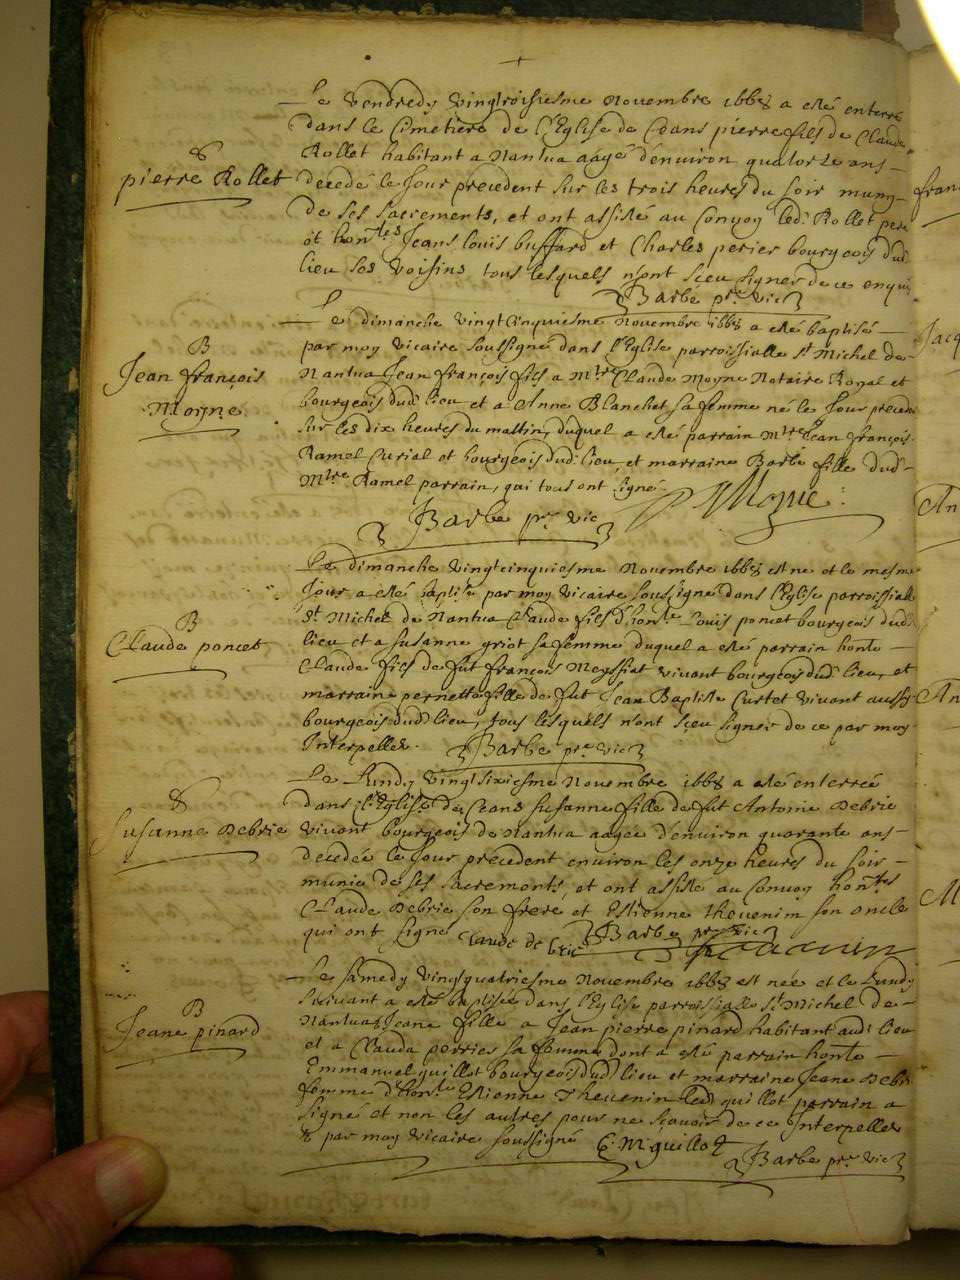 Le vendredy vingtroisiesme Novembre 1668 a esté enterré
dans le Cimetiere de l'Eglise de Ceans pierre fils de Claude
Rollet habitant a Nantua aagé d'environ quatorze ans
&
pierre Rollet
decedé le Jour precedent sur les trois heures du soir muny
de ses sacrements, et ont assisté au Convoy led. Rollet pere
et honles Jeans Louis buffard et Charles perier bourgeois dud.
lieu ses voisins tous lesquels n'ont sceu signer de ce enquis
Barbe pre vic
Le dimanche vingtcinquiesme Novembre 1668 a esté baptisé
par moy vicaire soussigné dans l'Eglise parroissialle st Michel de
B
Jean françois
Moyne
Nantua Jean françois fils a Mtre Claude Moyne Notaire Royal et
bourgeois dud. lieu et a Anne Blanchet sa femme né le Jour precedt
sur les dix heures du mattin, duquel a esté parrain Mtre Jean françois
Ramel Curial et bourgeois dud. lieu, et marraine Barbe fille dud.
Mtre Ramel parrain, qui tous ont signé
Moyne
Barbe pre vic
Le dimanche vingtcinquiesme Novembre 1668 est ne et le mesme
Jour a esté baptisé par moy vicaire soussigné dans l'Eglise parroissialle
st Michel de Nantua Claude fils d'honle Louis poncet bourgeois dud.
B
Claude poncet
lieu et a susanne griot sa femme duquel a esté parrain honle
Claude fils de fut françois Meyssiat vivant bourgeois dud. lieu, et
marraine pernette fille de fut Jean Baptiste Curtet vivant aussy
bourgeois dud. lieu, tous lesquels n'ont sceu signer de ce par moy
Interpellez.
Barbe pre vic
Le Lundy vingtsixiesme Novembre 1668 a esté enterrée
dans l'Eglise de Ceans susanne fille de fut Antoine Debrie
&
Susanne Debrie
vivant bourgeois de Nantua aagée d'environ quarante ans
decedée le Jour precedent environ les onze heures du soir
munie de ses sacrements, et ont assisté au Convoy honles
Claude Debrie son frere et Estienne thevenin son oncle
qui ont signé
Claude de brie
Barbe pre vic
Le samedy vingtquatriesme Novembre 1668 est née et le Lundy
suivant a esté baptisée dans l'Eglise parroissialle st Michel de
B
Jeane pinard
Nantua Jeane fille a Jean pierre pinard habitant aud. lieu
et a Clauda perrier sa femme dont a esté parrain honle
Emmanuel quillot bourgeois dud. lieu et marraine Jeane Debrie
femme d'honle Estienne Thevenin led. quillot parrain a
signé et non les autres pour ne sçavoir de ce Interpellez
& par moy vicaire soussigné
E. M. quillot
Barbe pre vic